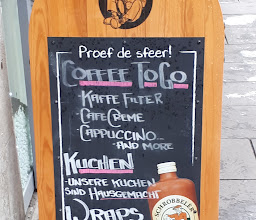 Proef de sfeer!
COFFEE TO GO
- KAFFE FILTER
- CAFE CREME
- CAPPUCCINO...
AND MORE
KUCHEN
- UNSERE KUCHEN
SIND HAUSGEMACHT
WRAPS
SCHROBBELER